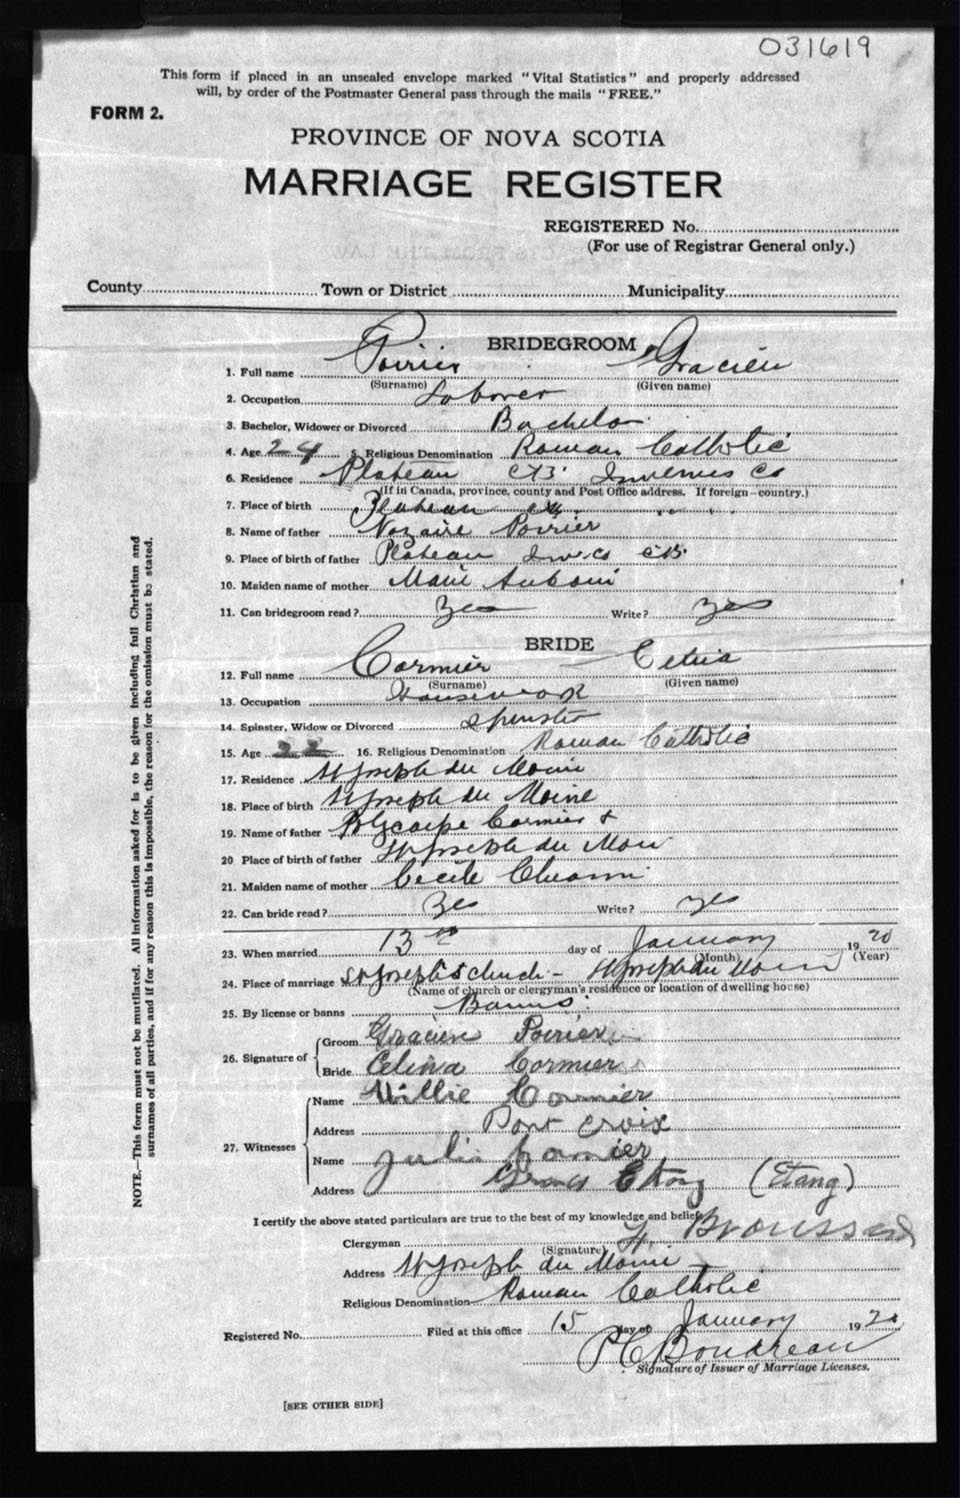 031619
This form if placed in an unsealed envelope marked "Vital Statistics" and properly addressed
will, by order of the Postmaster General pass through the mails "FREE."
FORM 2.
PROVINCE OF NOVA SCOTIA
MARRIAGE REGISTER
REGISTERED No.
(For use of Registrar General only.)
County Town or District Municipality
BRIDEGROOM
1. Full name Poirier Gracien
(Surname) (Given name)
2. Occupation Laborer
3. Bachelor, Widower or Divorced Bachelor
4. Age 24 5. Religious Denomination Roman Catholic
6. Residence Plateau CB Inverness Co
(If in Canada, province, county and Post Office address. If foreign—country.)
7. Place of birth Plateau " "
8. Name of father Nazaire Poirier
9. Place of birth of father Plateau Inv. Co CB.
10. Maiden name of mother Marie
11. Can bridegroom read? Yes Write? Yes
BRIDE
12. Full name Cormier
(Surname) (Given name)
13. Occupation Housework
14. Spinster, Widow or Divorced Spinster
15. Age 22 16. Religious Denomination Roman Catholic
17. Residence St Joseph du Moine
18. Place of birth St Joseph du Moine
19. Name of father Polycarpe Cormier
20 Place of birth of father St Joseph du Moine
21. Maiden name of mother Cecile
22. Can bride read? Yes Write? Yes
23. When married 13th day of January 1920
(Month) (Year)
24. Place of marriage St Joseph's Church - St Joseph du Moine
(Name of church or clergyman's residence or location of dwelling house)
25. By license or banns Banns
26. Signature of
Groom Gracien Poirier
Bride Celina Cormier
27. Witnesses
Name Willie Cormier
Address Pont Croix
Name
Address Grand Etang (Etang)
I certify the above stated particulars are true to the best of my knowledge and belief.
Clergyman Broussard
(Signature)
Address St Joseph du Moine
Religious Denomination Roman Catholic
Registered No. Filed at this office 15 day of January 1920
P C Boudreau
Signature of Issuer of Marriage Licenses.
[SEE OTHER SIDE]
NOTE.—This form must not be mutilated. All information asked for is to be given including full Christian and
surnames of all parties, and if for any reason this is impossible, the reason for the omission must be stated.